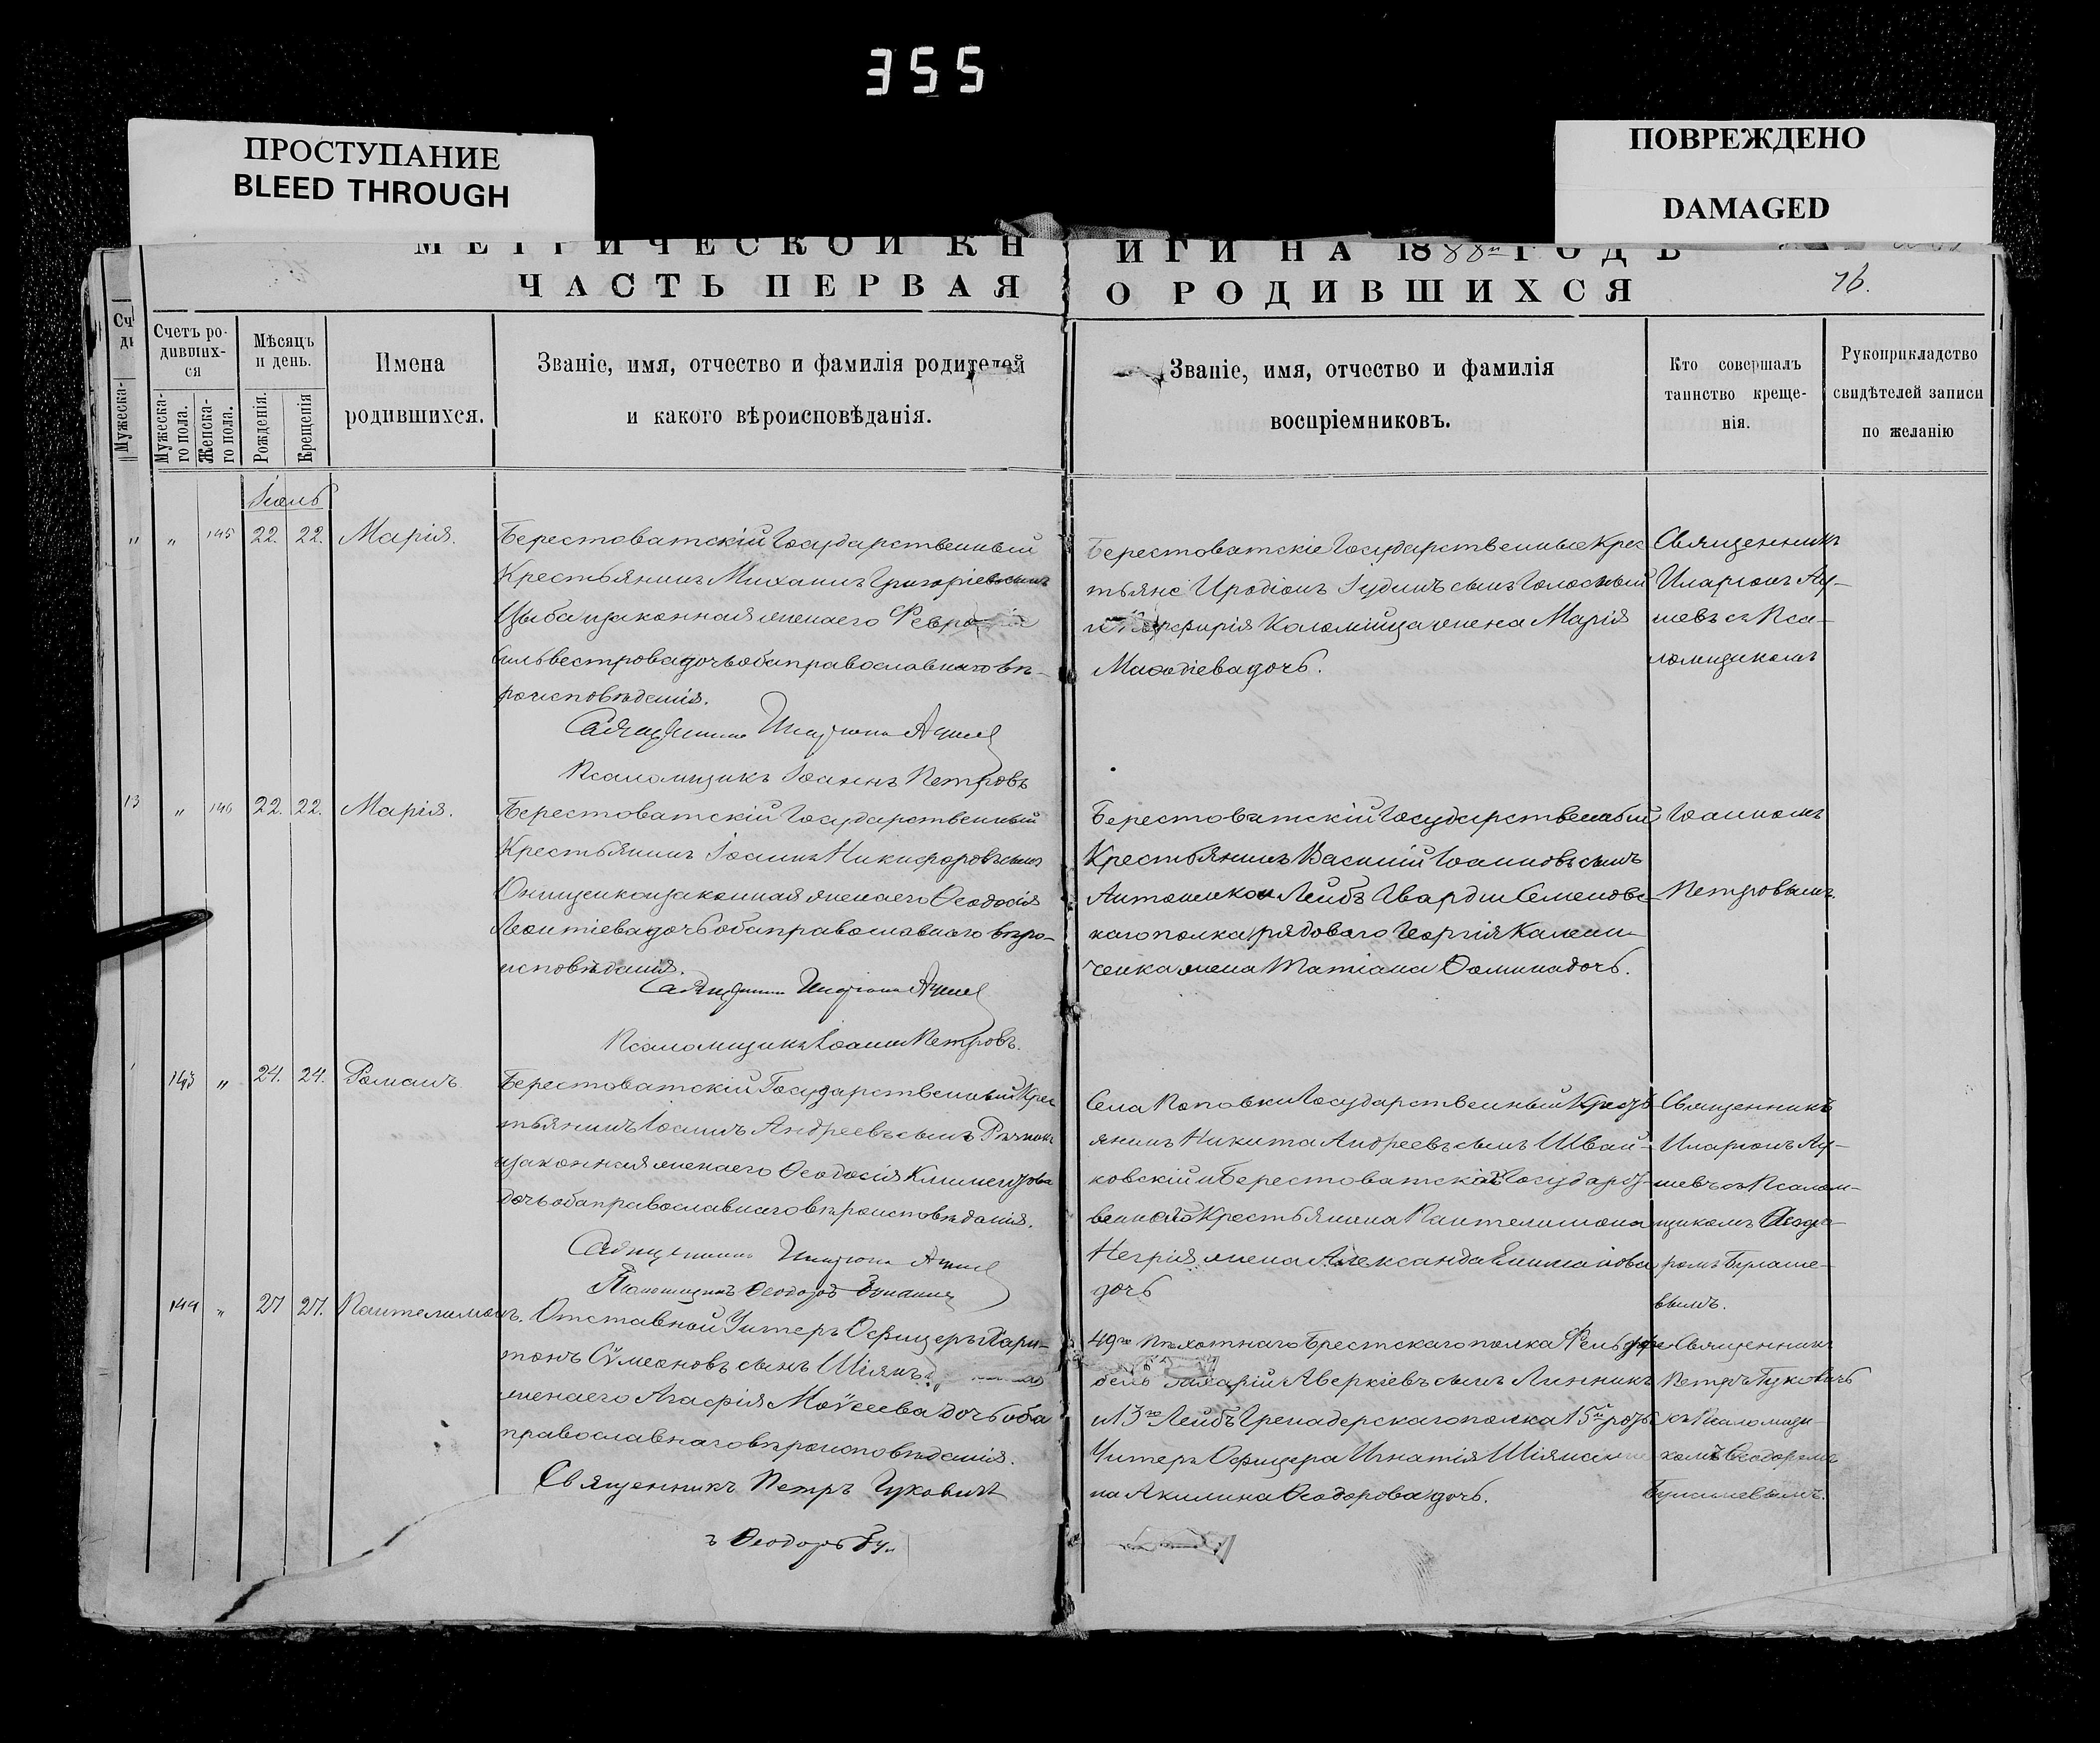 355
ПРОСТУПАНИЕ
BLEED THROUGH
ПОВРЕЖДЕНО
DAMAGED
МЕТРИЧЕСКОЙ КНИГИ НА 1888й ГОДЪ
ЧАСТЬ ПЕРВАЯ О РОДИВШИХСЯ
76.
Счетъ ро-
дивших-
ся
Мужеска-
го пола.
Женска-
го пола.
Мѣсяцъ
и день.
Рожденія.
Крещенія
Имена
родившихся.
Званіе, имя, отчество и фамилія родителей
и какого вѣроисповѣданія.
Званіе, имя, отчество и фамилія
воспріемниковъ.
Кто совершалъ
таинство креще-
нія.
Рукоприкладство
свидѣтелей записи
по желанію
Мужеска-
Іюль
" 145 22. 22. Марія.
Берестоватскій Государственный
Крестьянинъ Михаилъ Григоріевъ сынъ
Цыба и законная жена его
Сильвестрова дочь оба православнаго вѣ-
роисповѣданія.
Священникъ Иларіонъ
Псаломщикъ Іоаннъ Петровъ
Берестоватскіе Государственные Крес
тьяне Иродіонъ Іудинъ сынъ Голосный
и Порфирія Коломійца жена Марія
Меѳодіева дочь.
Священникъ
Иларіонъ
съ Пса-
ломщикомъ
13
" 146 22. 22. Марія.
Берестоватскій Государственный
Крестьянинъ Іоаннъ Никифоровъ сынъ
Онищенко и законная жена его Ѳеодосія
Леонтіева дочь оба православнаго вѣро-
исповѣданія.
Священникъ Иларіонъ
Псаломщикъ Іоаннъ Петровъ.
Берестоватскій Государственный
Крестьянинъ Василій Іоанновъ сынъ
Антоненко и Лейбъ Гвардіи Семеновс-
каго полка рядоваго Георгія Калени-
ченка жена Татіана Ѳомина дочь.
Іоанномъ
Петровымъ.
143 " 24. 24. Романъ
Берестоватскій Государственный Крес
тьянинъ Іоаннъ Андреевъ сынъ
и законная жена его Ѳеодосія Климентова
дочь оба православнаго вѣроисповѣданія.
Священникъ Иларіонъ
Псаломщикъ Ѳеодоръ
Села Поповки Государственный Крест
янинъ Никита Андреевъ сынъ Швай-
ковскій и Берестоватскаго Государст-
веннаго Крестьянина Пантелимона
Негрія жена Александра
дочь
Священникъ
Иларіонъ
съ Псалом-
щикомъ Ѳеодо-
ромъ
вымъ.
144 " 27 27. Пантелимонъ.
Отставной Унтеръ Офицеръ Хари-
тонъ Сѵмеоновъ сынъ
жена его Агафія Моѵсеева дочь оба
православнаго вѣроисповѣданія.
Священникъ Петръ
ъ Ѳеодоръ
49го Пѣхотнаго Брестскаго полка Фельдфе
бель Захарій Аверкіевъ сынъ Линникъ
и 13го Лейбъ Гренадерскаго полка 15й роты
Унтеръ Офицера Игнатія
на Акилина Ѳеодорова дочь.
Священникъ
Петръ
съ Псаломщи-
комъ Ѳеодоромъ